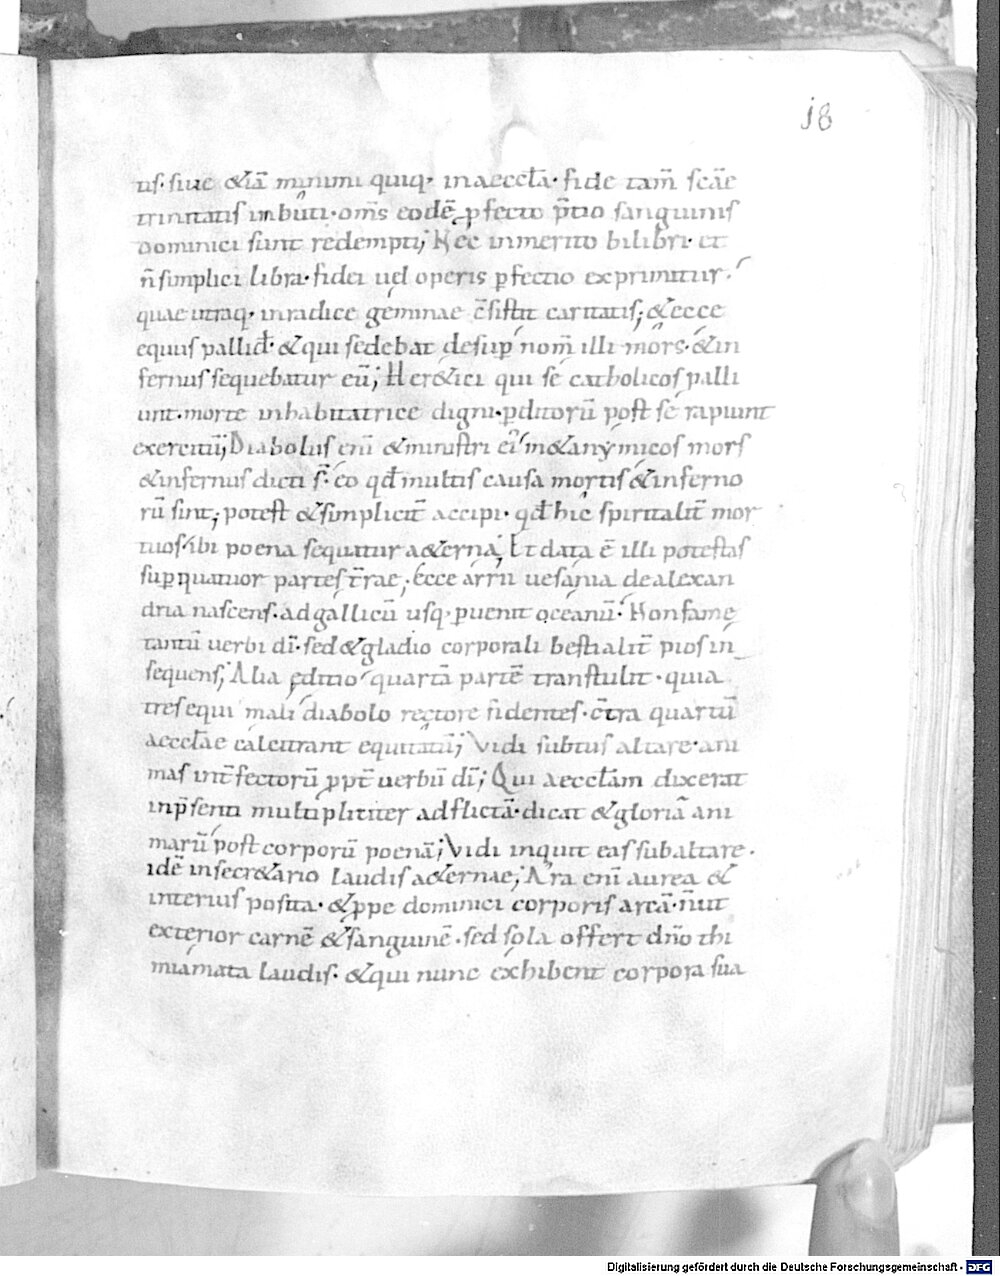 18
tıs· siue &iā minimi quiq· in aeccła· fide tam̄ scāe
trinitatis inbuti· om̄s eodē ꝑfecto p̄tio sanguinis
dominici sunt redempti; Nec inmerito bilibri· et
n̄ simplici libra· fidei uel operis ꝑfectio exprimitur·
quae utraq· in radice geminae c̄sistit caritatis; & ecce
equus pallid· & qui sedebat desup nom̄ illi mors· & in
fernus sequebatur eū; Her&ici qui se catholicos palli
unt· morte inhabitatrice digni· ꝑditorū post se rapiunt
exercitū; Diabolus enī & ministri ei in& anymicos mors
& infernus dicti s̄· eo qđ multis causa mortis & inferno
rū sint; potest & simplicit̄ accipi· qđ hic spiritalit̄ mor
tuos· ibi poena sequatur a&erna; Et data ē illi potestas
suꝑ quatuor partes t̄rae; Ecce arrii uesania de alexan
dria nascens· ad gallicū usq· ꝑuenit oceanū· Non fame
tantū uerbi dī· sed & gladio corporali bestialit̄ pios in
sequens; Alia editio quartā partē transtulit· quia
tres equi mali diabolo rectore fidentes· c̄tra quartū
aeccłae calcitrant equitatū; Vidi subtus altare· ani
mas int̄fectorū ꝓpt̄ uerbū dī; Qui aeccłam dixerat
in p̄senti multipliciter adflictā· dicat & gloriā ani
marū post corporū poenā; Vidi inquit eas sub altare·
idē in secr&ario laudis a&ernae; Ara enī aurea &
interius posita· & ꝓpe dominici corporis arcā· n̄ ut
exterior carnē & sanguinē· sed sola offert dn̄o thi
miamata laudis· & qui nunc exhibent corpora sua
Digitalisierung gefördert durch die Deutsche Forschungsgemeinschaft - DFG